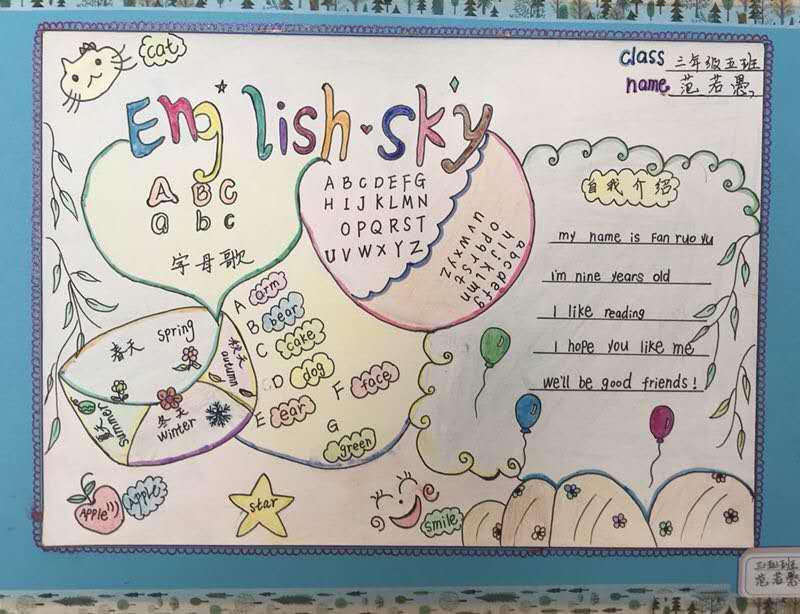 cat
class 三年级五班
name 范若愚
English·sky
A B C
a b c
字母歌
A B C D E F G
H I J K L M N
O P Q R S T
U V W X Y Z
a b c d e f g
h i j k l m n
o p q r s t
u v w x y z
自我介绍
my name is Fan ruo yu
I'm nine years old
I like reading
I hope you like me
we'll be good friends!
春天 spring
秋天 autumn
夏天 summer
冬天 winter
A arm
B bear
C cake
D dog
E ear
F face
G green
APPLE
Apple
star
smile
三年级五班
范若愚